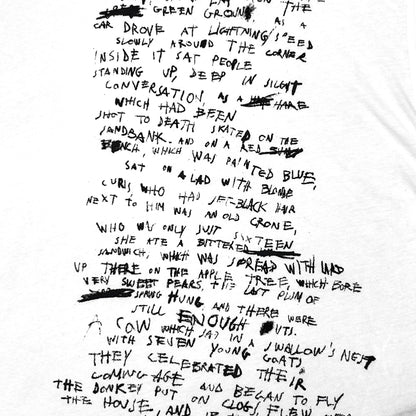 ON THE
GREEN GROUND AS A
CAR DROVE AT LIGHTNING SPEED
SLOWLY AROUND THE CORNER
INSIDE IT SAT PEOPLE
STANDING UP, DEEP IN SILENT
CONVERSATION, AS A HARE
WHICH HAD BEEN
SHOT TO DEATH SKATED ON THE
SANDBANK. AND ON A RED
BENCH, WHICH WAS PAINTED BLUE,
SAT ON A LAD WITH BLONDE
CURLS WHO HAD JET-BLACK HAIR
NEXT TO HIM WAS AN OLD CRONE,
WHO WAS ONLY JUST SIXTEEN
SHE ATE A BUTTERED
SANDWICH, WHICH WAS SPREAD WITH LARD
UP THERE ON THE APPLE TREE, WHICH BORE
VERY SWEET PEARS, THE LAST PLUM OF
SPRING HUNG, AND THERE WERE
STILL ENOUGH NUTS.
A COW WHICH SAT IN A SWALLOW'S NEST
WITH SEVEN YOUNG GOATS
THEY CELEBRATED THEIR
COMING AGE
THE DONKEY PUT AND BEGAN TO FLY
THE HOUSE, AND ON CLOGS, FLEW